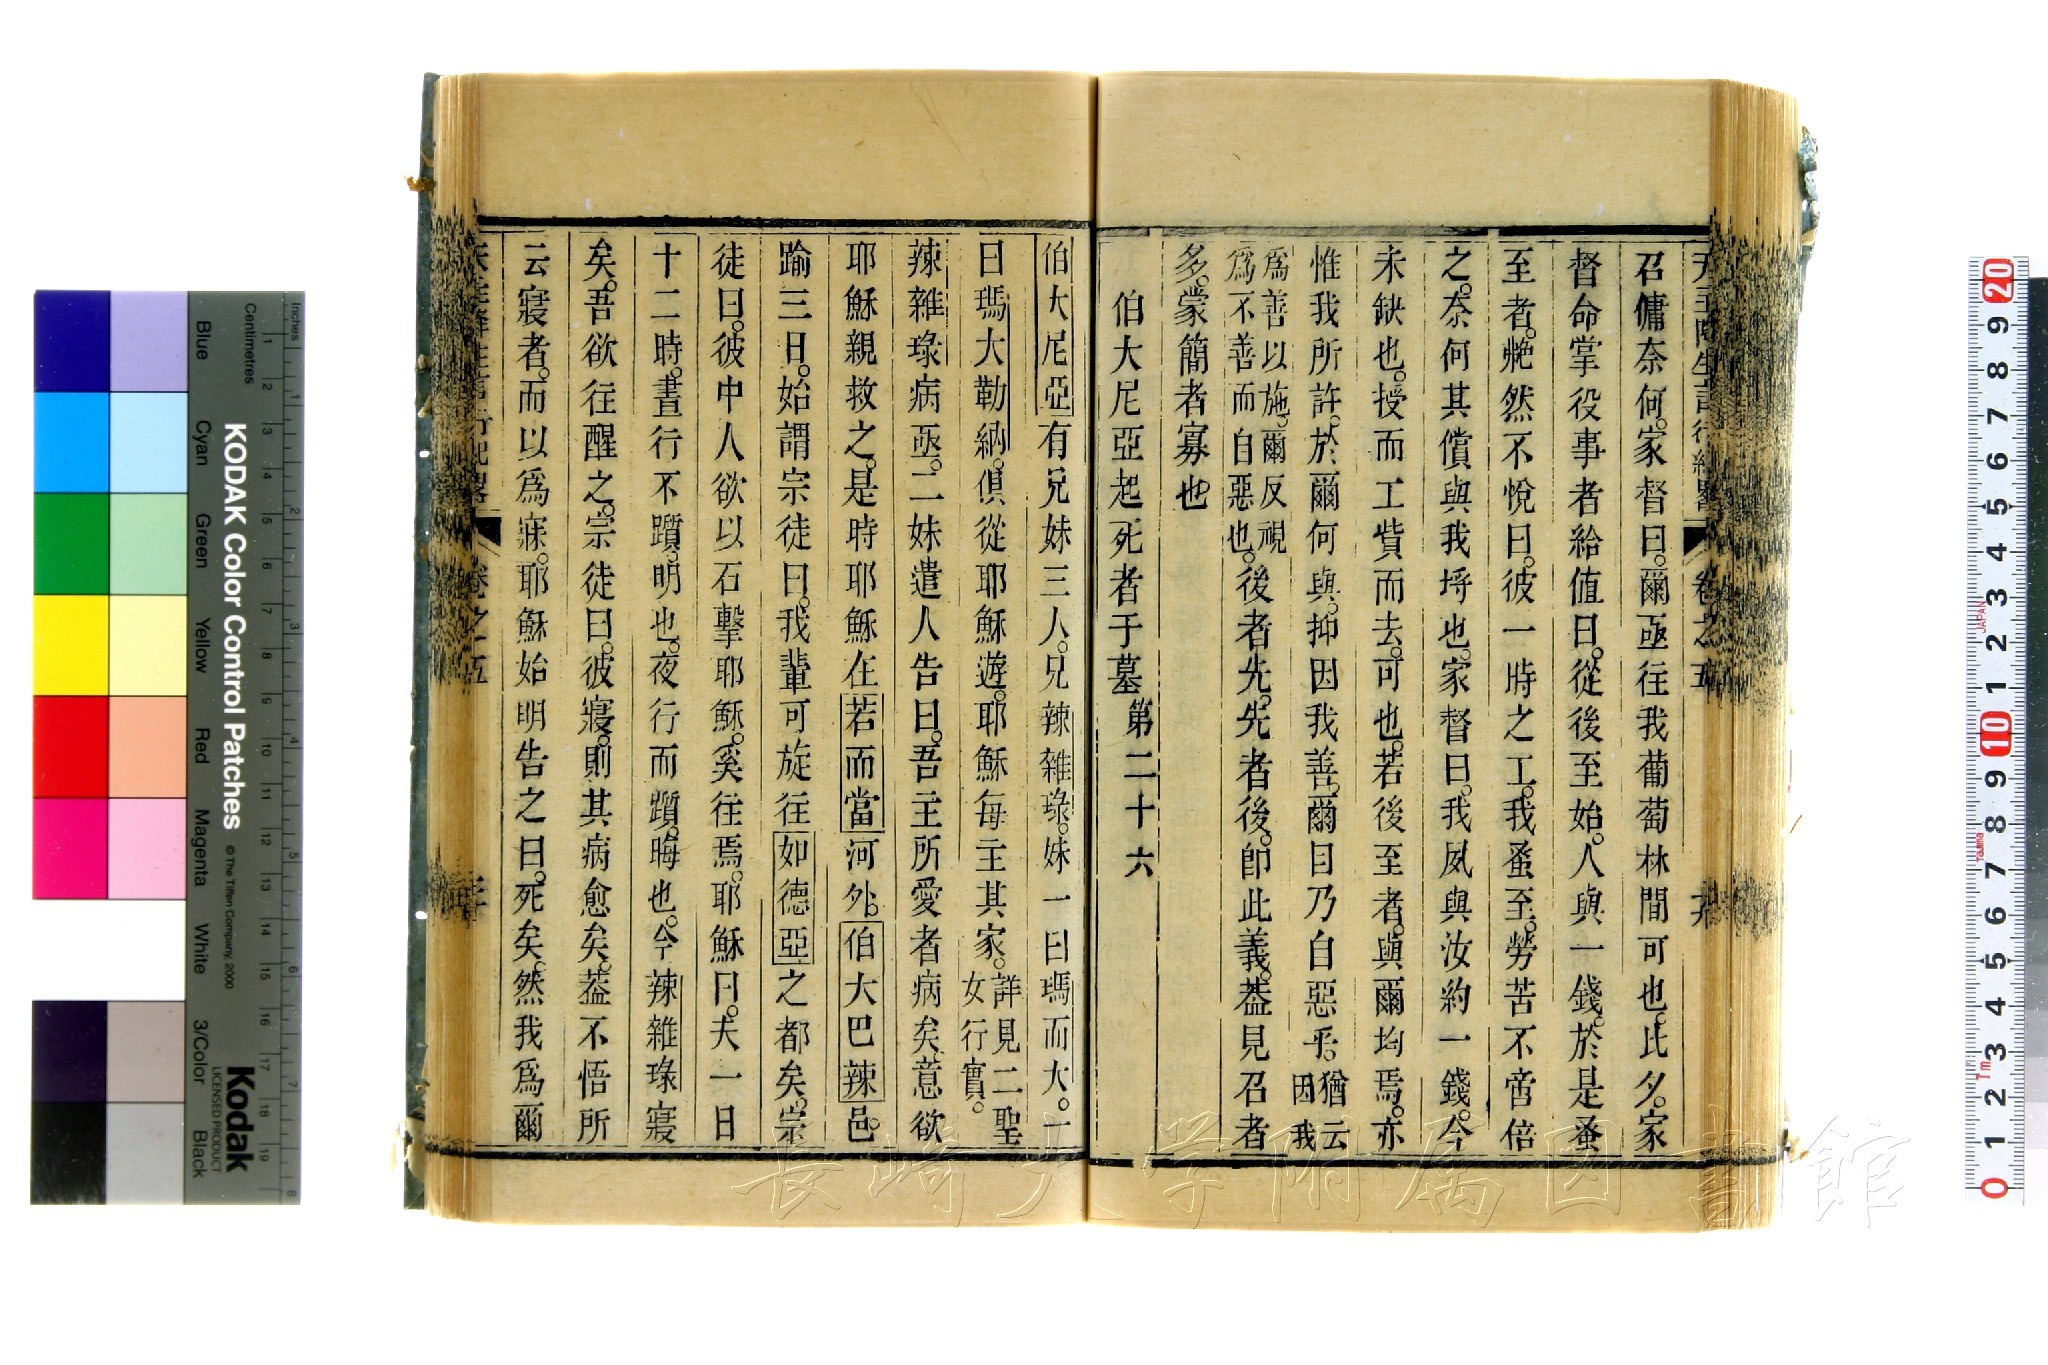 召傭奈何。家督曰。爾亟往我葡萄林間可也。比夕。家
督命掌役事者給值曰。從後至始。人與一錢。於是蚤
至者。艴然不悅曰。彼一時之工。我蚤至。勞苦不啻倍
之。奈何其償與我埒也。家督曰。我夙與汝約一錢。今
未缺也。授而工貲而去。可也。若後至者。與爾均焉。亦
惟我所許。於爾何與。抑因我善。爾目乃自惡乎。猶云因我
為善以施。爾反視為不善而自惡也。後者先。先者後。卽此義。葢見召者
多。蒙簡者寡也
伯大尼亞起死者于墓 第二十六
伯大尼亞有兄妹三人。兄辣雜琭。妹一曰瑪而大。一
曰瑪大勒納。俱從耶穌遊。耶穌每主其家。詳見二聖女行實。
辣雜琭病亟。二妹遣人告曰。吾主所愛者病矣。意欲
耶穌親救之。是時耶穌在若而當河外。伯大巴辣邑。
踰三日。始謂宗徒曰。我輩可旋往如德亞之都矣。宗
徒曰。彼中人欲以石擊耶穌。奚往焉。耶穌曰。夫一日
十二時。晝行不躓。明也。夜行而躓。晦也。今辣雜琭寢
矣。吾欲往醒之。宗徒曰。彼寢。則其病愈矣。葢不悟所
云寢者。而以為寐。耶穌始明告之曰。死矣。然我為爾
卷之五
KODAK Color Control Patches
© The Tiffen Company, 2000
Kodak
LICENSED PRODUCT
Inches
Centimetres
Blue
Cyan
Green
Yellow
Red
Magenta
White
3/Color
Black
JAPAN
長崎大学附属図書館